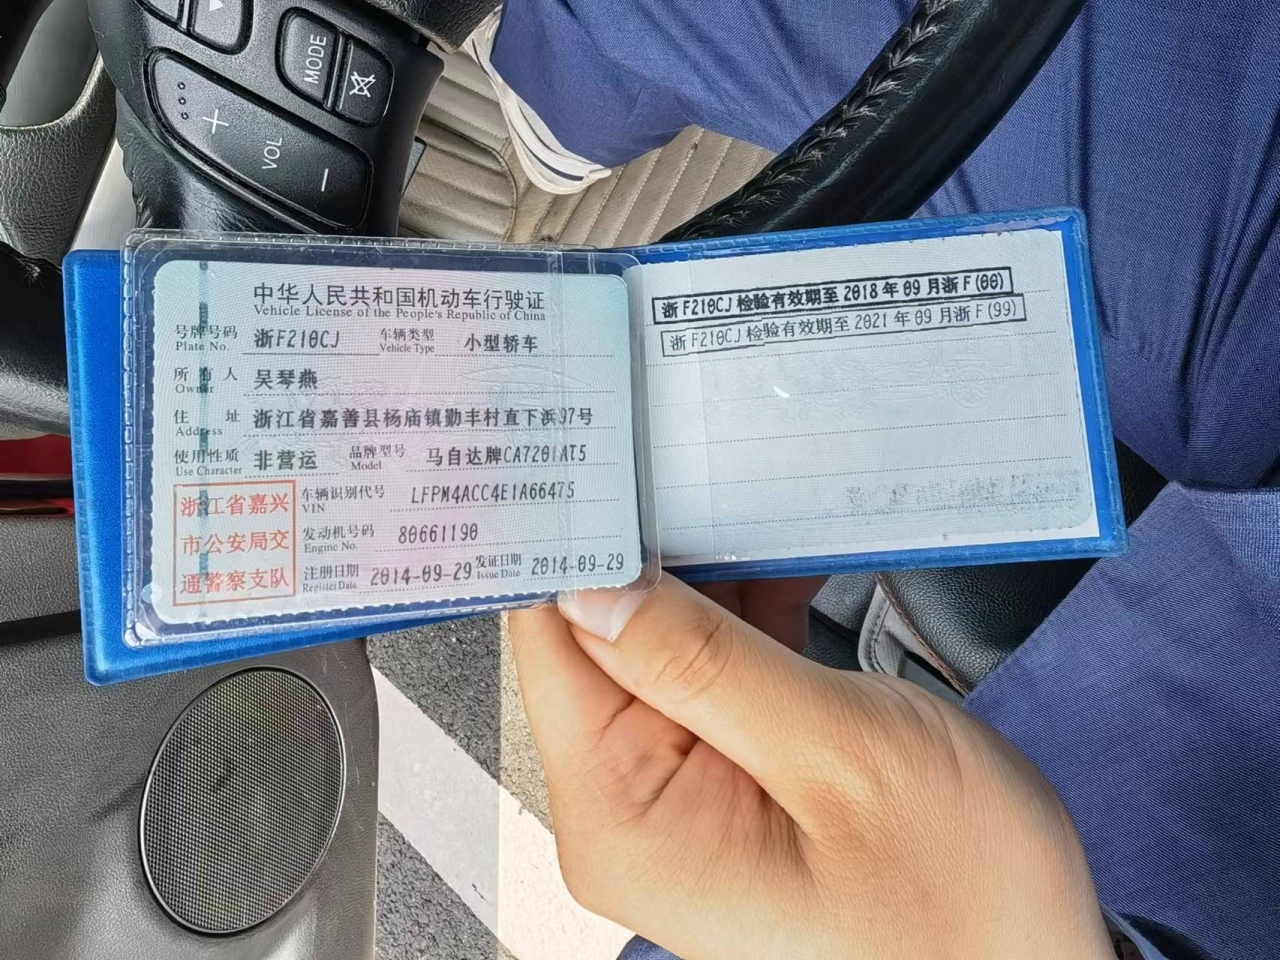 MODE
+
VOL
−
中华人民共和国机动车行驶证
Vehicle License of the People's Republic of China
号牌号码 浙F210CJ 车辆类型 小型轿车
Plate No. Vehicle Type
所有人 吴琴燕
Owner
住址 浙江省嘉善县杨庙镇勤丰村直下浜97号
Address
使用性质 非营运 品牌型号 马自达牌CA7201AT5
Use Character Model
浙江省嘉兴
市公安局交
通警察支队
车辆识别代号 LFPM4ACC4E1A66475
VIN
发动机号码 80661190
Engine No.
注册日期 2014-09-29 发证日期 2014-09-29
Register Date Issue Date
浙F210CJ检验有效期至2018年09月浙F(00)
浙F210CJ检验有效期至2021年09月浙F(99)